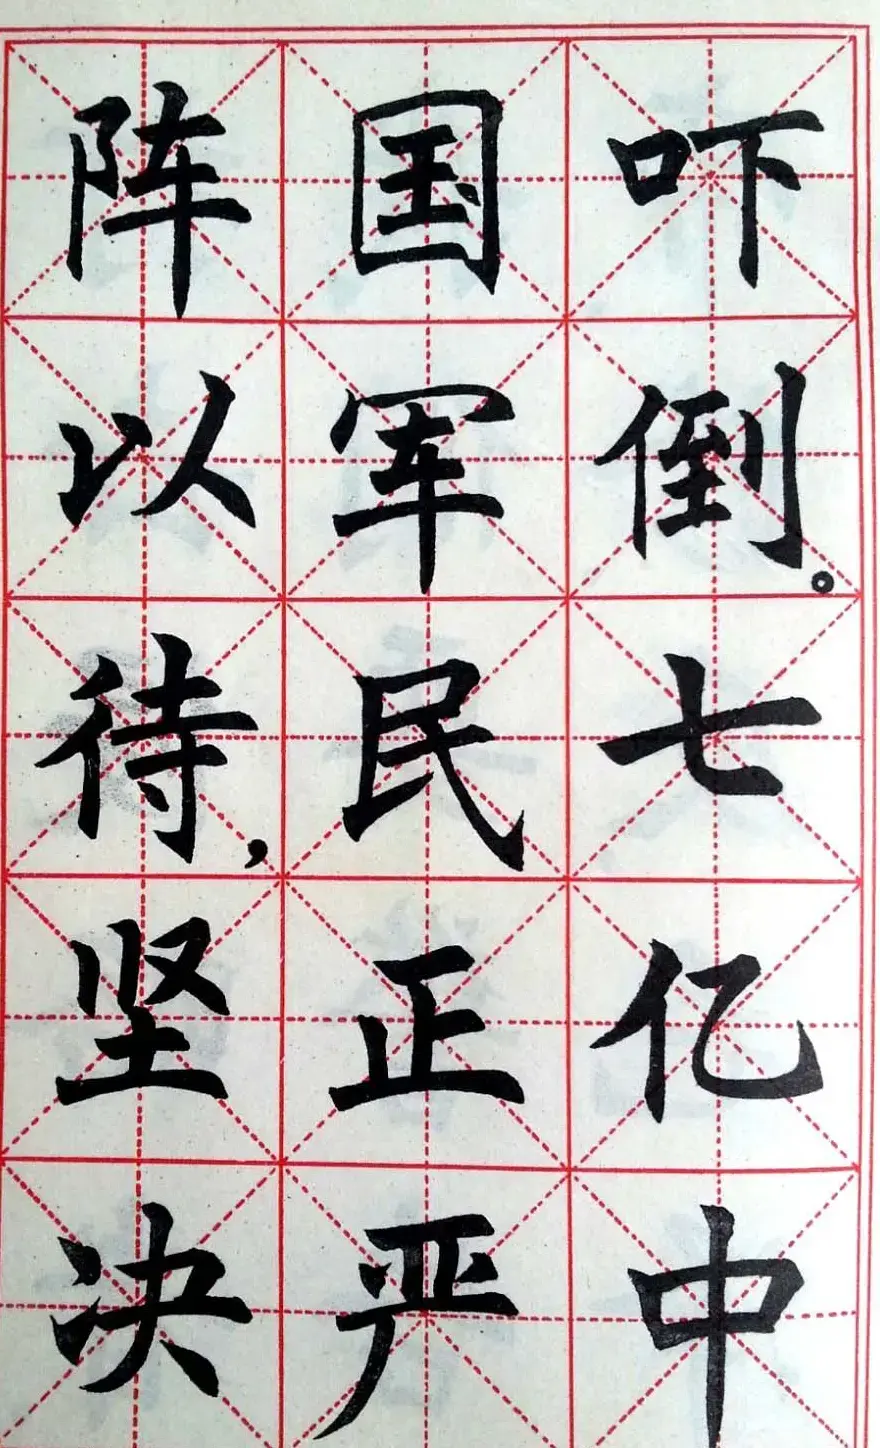 吓倒。七亿中
国军民正严
阵以待，坚决